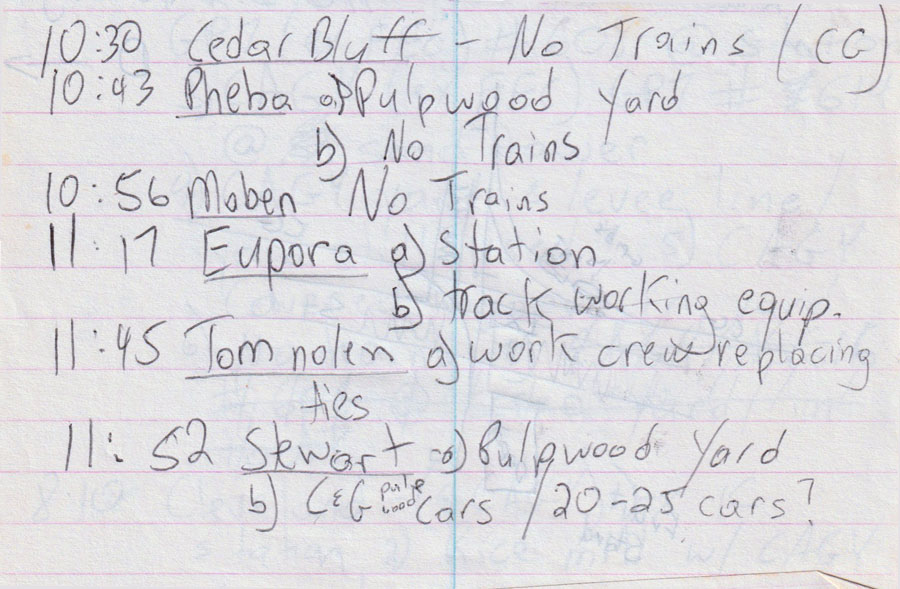 10:30 Cedar Bluff - No Trains (CG)
10:43 Pheba a) Pulpwood Yard
b) No Trains
10:56 Maben No Trains
11:17 Eupora a) Station
b) track working equip.
11:45 Tomnolen a) work crew replacing
ties
11:52 Stewart a) Pulpwood Yard
b) C&G pulpwood cars / 20-25 cars?